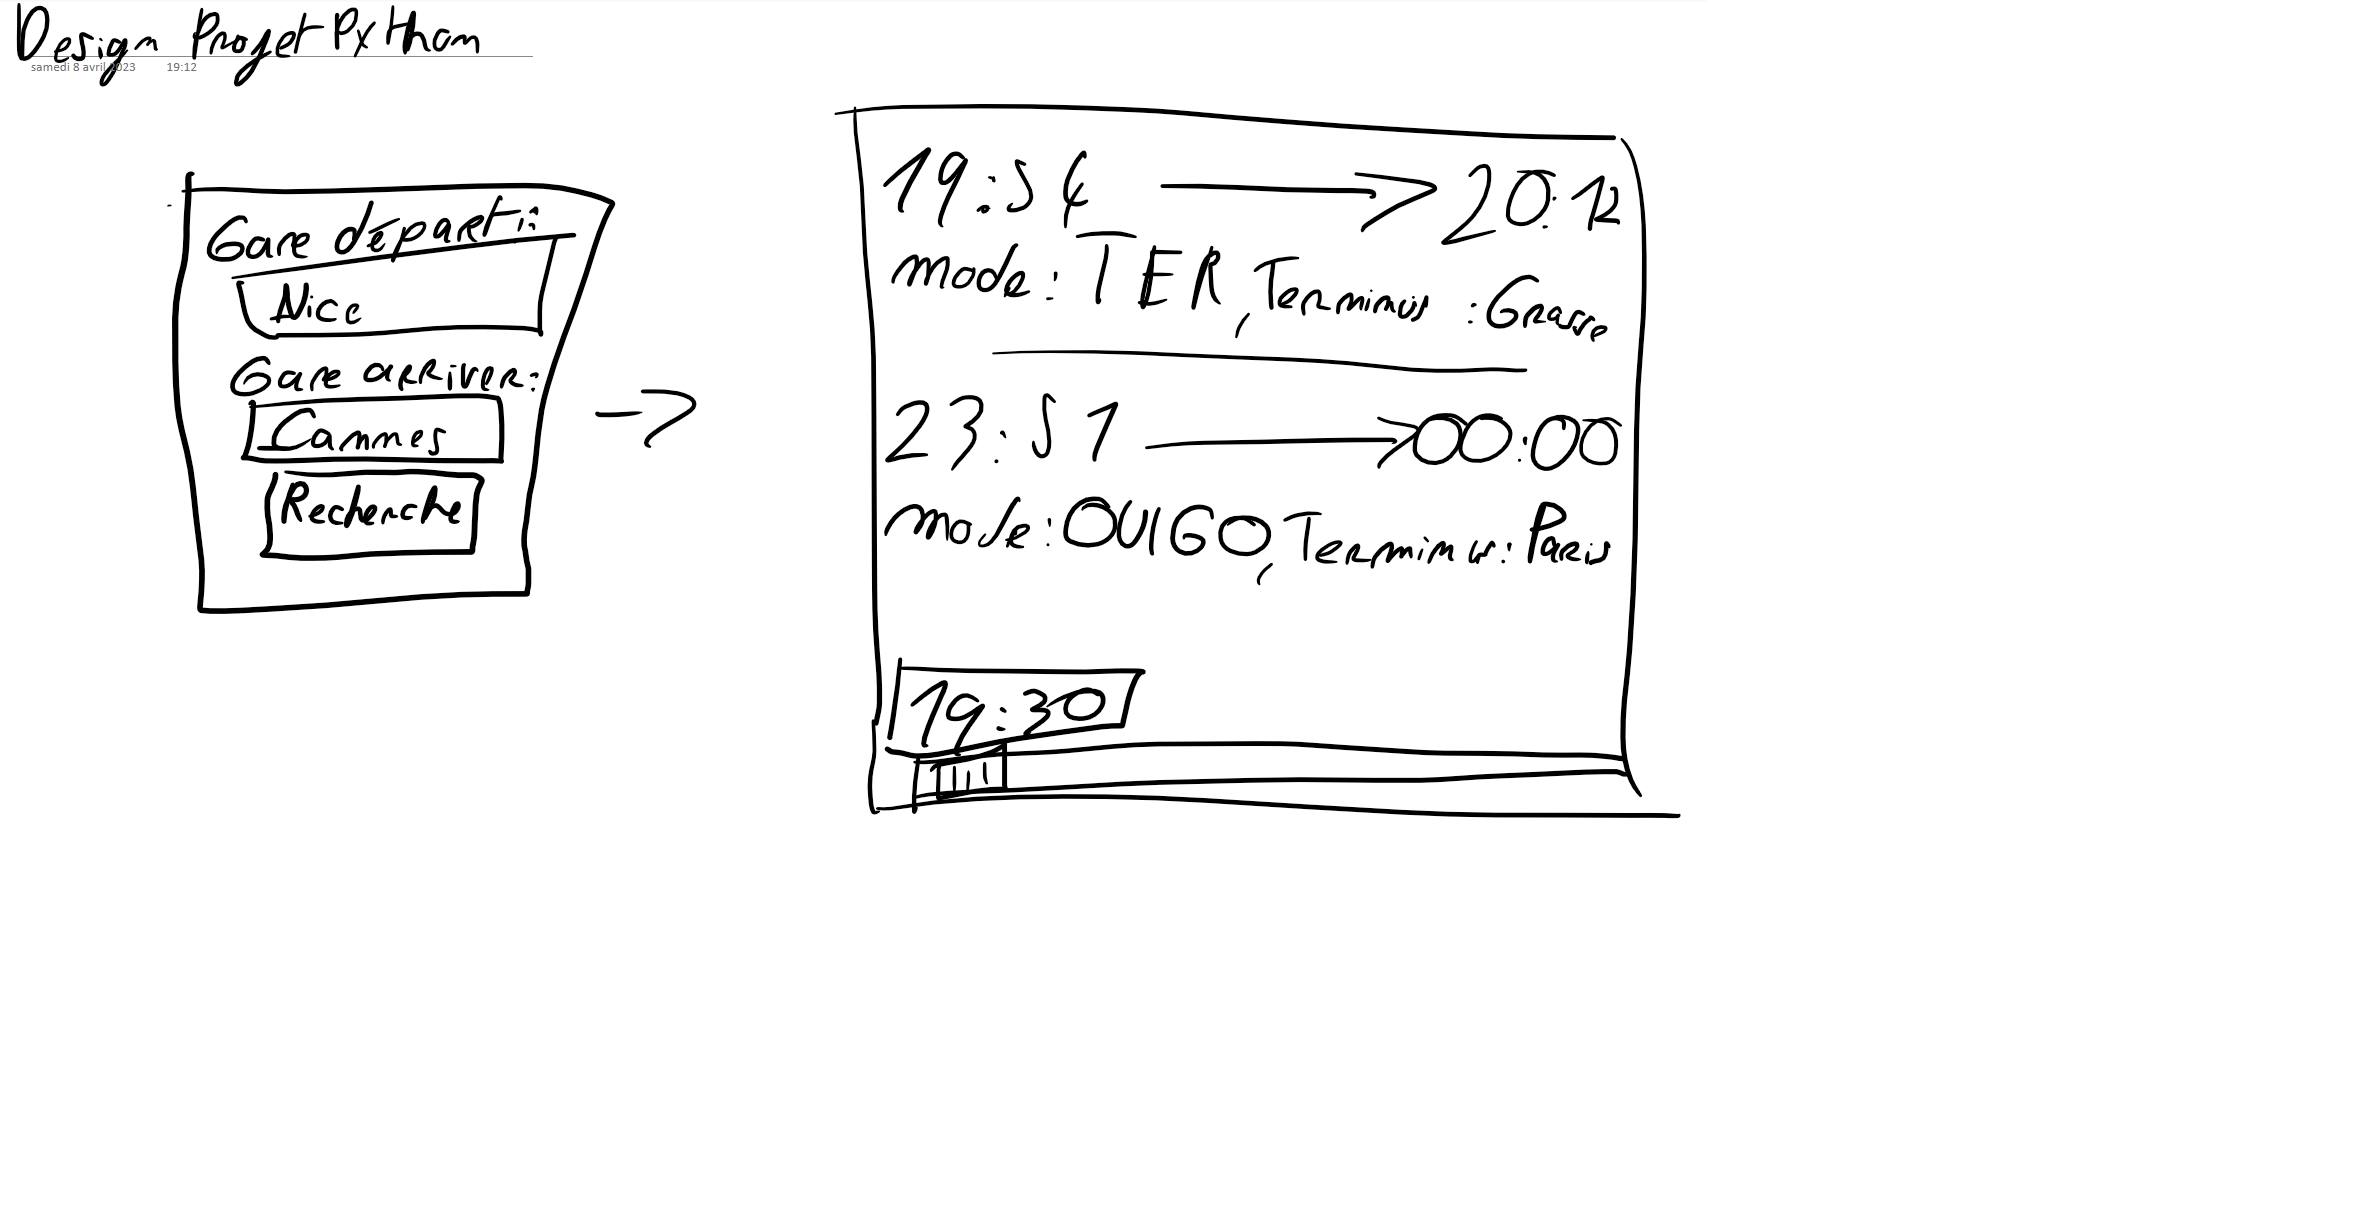 Design Projet Python
samedi 8 avril 2023 19:12
Gare départ :
Nice
Gare arriver :
Cannes
Recherche
->
19:54 -> 20:12
mode : TER, Terminus : Grasse
23:51 -> 00:00
mode : OUIGO, Terminus : Paris
19:30